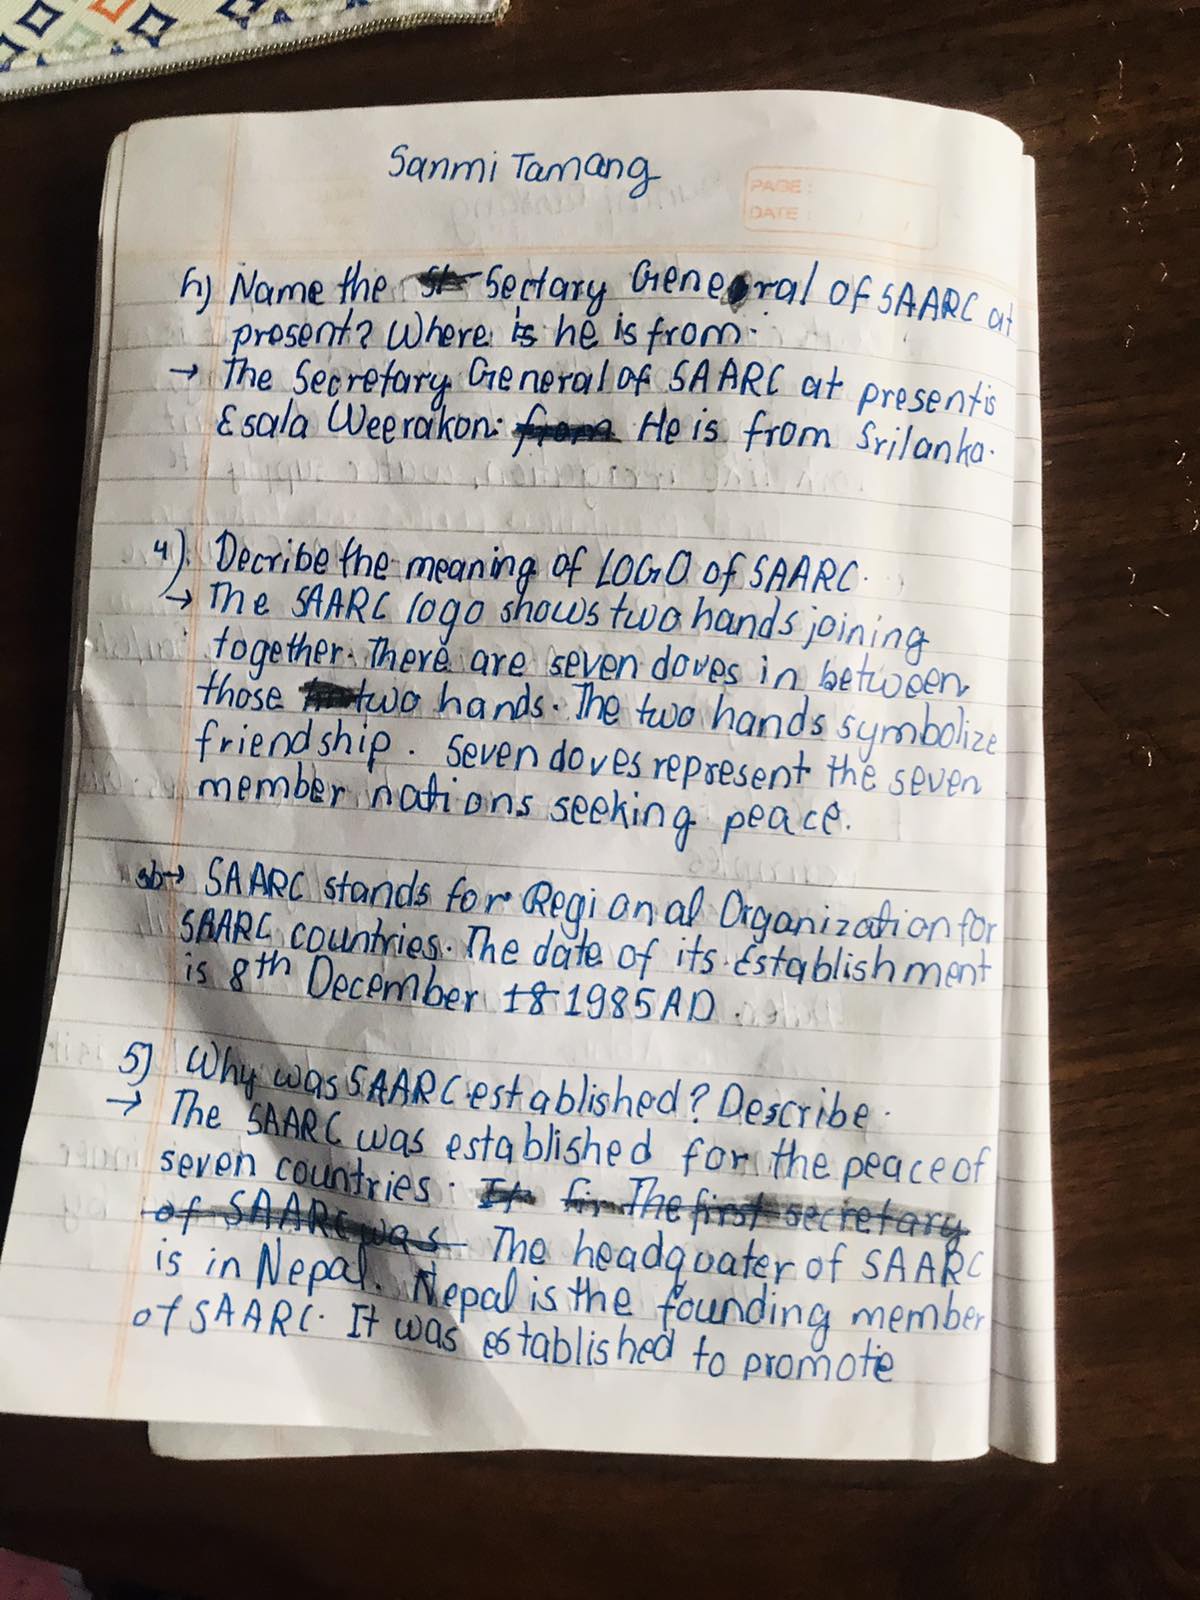 Sanmi Tamang
PAGE:
DATE:
h) Name the Sectary General of SAARC at
present? Where is he is from.
→ The Secretary General of SAARC at present is
Esala Weerakon. from He is from Srilanka.
4) Decribe the meaning of LOGO of SAARC.
→ The SAARC logo shows two hands joining
together. There are seven doves in between
those two hands. The two hands symbolize
friendship. Seven doves represent the seven
member nations seeking peace.
→ SAARC stands for Regional Organization for
SAARC countries. The date of its Establishment
is 8th December 18 1985 AD.
5) Why was SAARC established? Describe.
→ The SAARC was established for the peace of
seven countries. It The first secretary
of SAARC was The headquater of SAARC
is in Nepal. Nepal is the founding member
of SAARC. It was established to promote